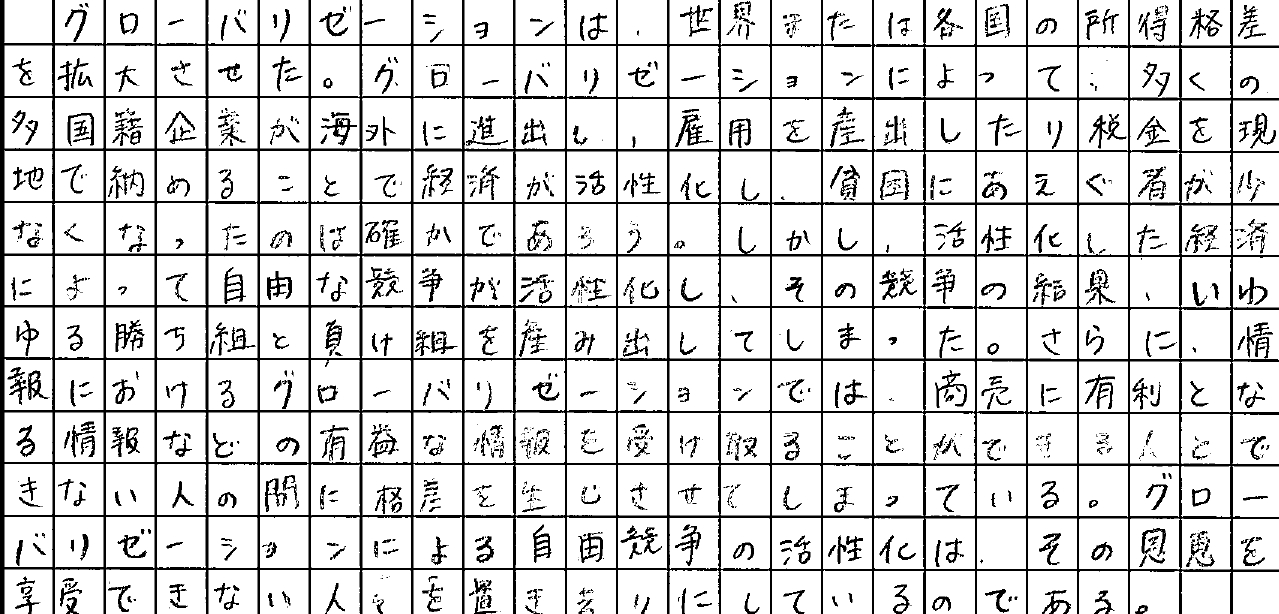 グローバリゼーションは、世界または各国の所得格差
を拡大させた。グローバリゼーションによって、多くの
多国籍企業が海外に進出し、雇用を産出したり税金を現
地で納めることで経済が活性化し、貧困にあえぐ者が少
なくなったのは確かであろう。しかし、活性化した経済
によって自由な競争が活性化し、その競争の結果、いわ
ゆる勝ち組と負け組を産み出してしまった。さらに、情
報におけるグローバリゼーションでは、商売に有利とな
る情報などの有益な情報を受け取ることができる人とで
きない人の間に格差を生じさせてしまっている。グロー
バリゼーションによる自由競争の活性化は、その恩恵を
享受できない人々を置き去りにしているのである。